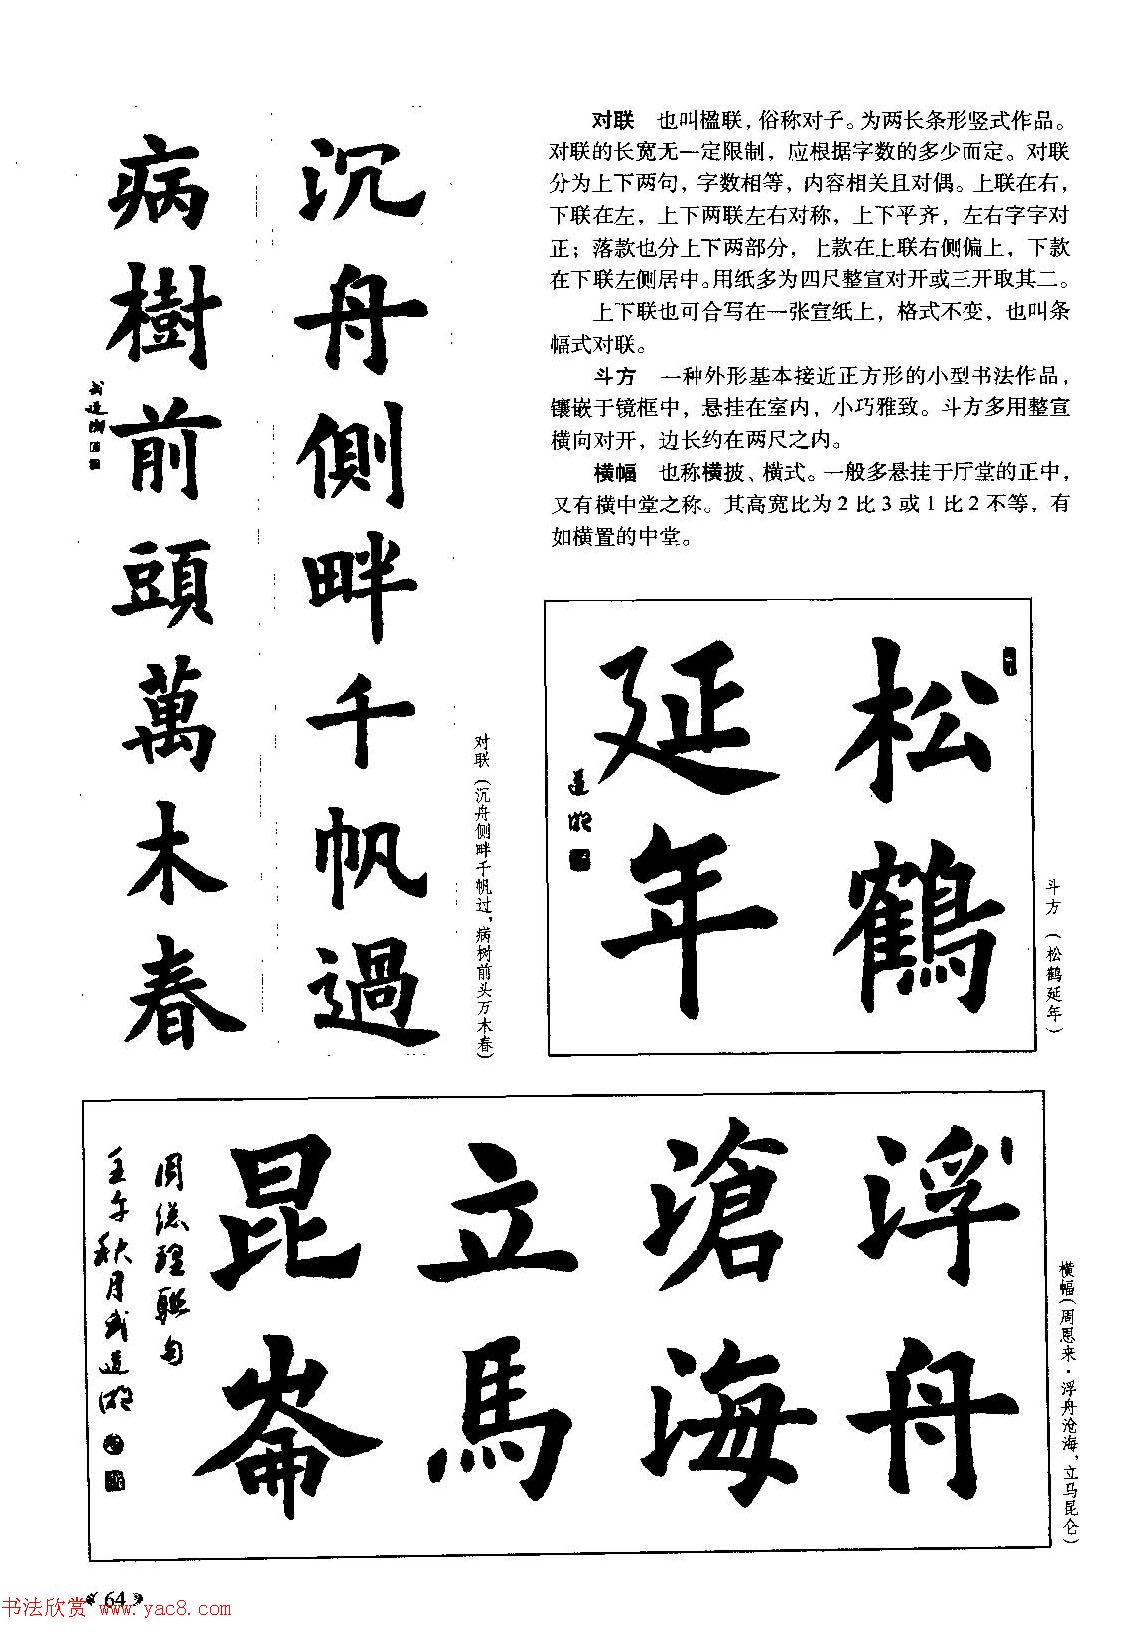 对联　也叫楹联，俗称对子。为两长条形竖式作品。
对联的长宽无一定限制，应根据字数的多少而定。对联
分为上下两句，字数相等，内容相关且对偶。上联在右，
下联在左，上下两联左右对称，上下平齐，左右字字对
正；落款也分上下两部分，上款在上联右侧偏上，下款
在下联左侧居中。用纸多为四尺整宣对开或三开取其二。
上下联也可合写在一张宣纸上，格式不变，也叫条
幅式对联。
斗方　一种外形基本接近正方形的小型书法作品，
镶嵌于镜框中，悬挂在室内，小巧雅致。斗方多用整宣
横向对开，边长约在两尺之内。
横幅　也称横披、横式。一般多悬挂于厅堂的正中，
又有横中堂之称。其高宽比为2比3或1比2不等，有
如横置的中堂。
沉舟側畔千帆過
病樹前頭萬木春
对联（沉舟侧畔千帆过，病树前头万木春）
松鶴
延年
道明
斗方（松鹤延年）
浮舟
滄海
立馬
昆崙
周总理联句
壬午秋月武道明
横幅（周恩来·浮舟沧海，立马昆仑）
64
书法欣赏 www.yac8.com